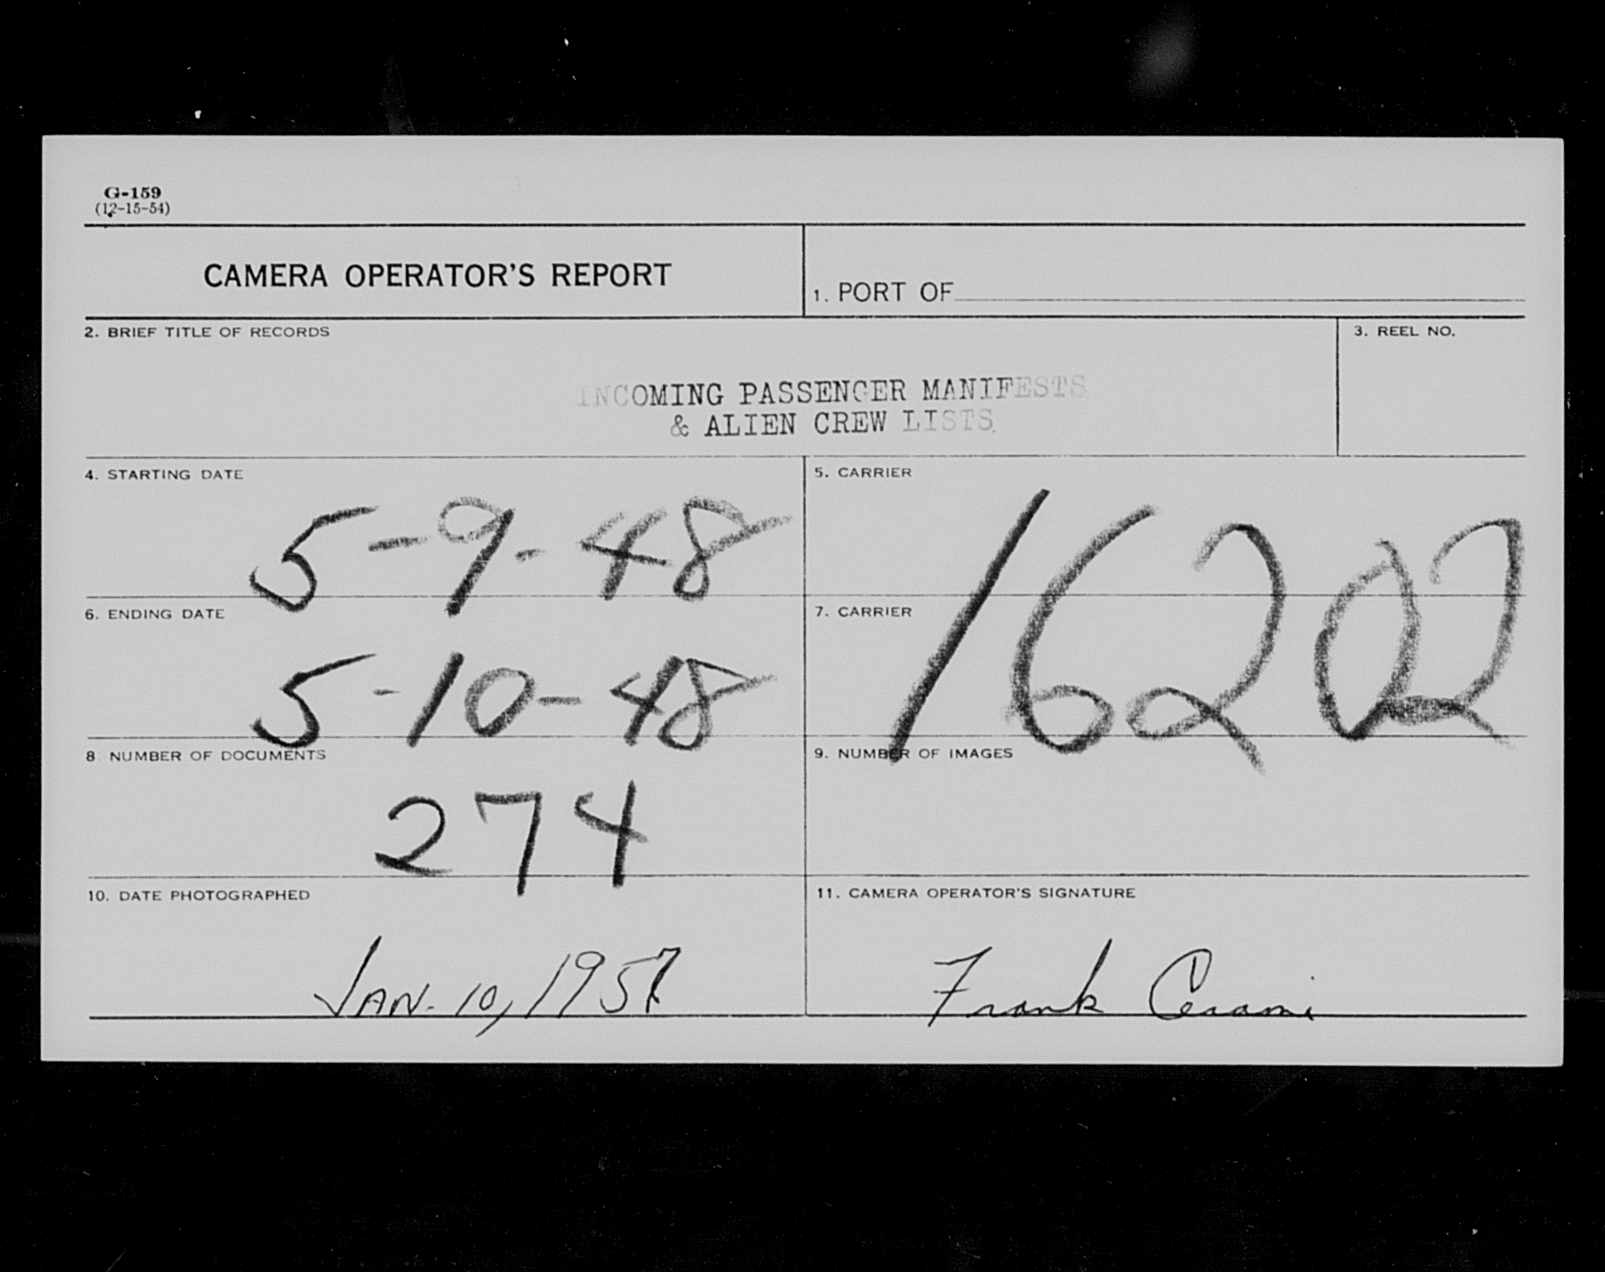 G-159
(12-15-54)
CAMERA OPERATOR'S REPORT
1. PORT OF
2. BRIEF TITLE OF RECORDS
3. REEL NO.
INCOMING PASSENGER MANIFESTS
& ALIEN CREW LISTS
4. STARTING DATE
5-9-48
5. CARRIER
16202
6. ENDING DATE
5-10-48
7. CARRIER
8 NUMBER OF DOCUMENTS
274
9. NUMBER OF IMAGES
10. DATE PHOTOGRAPHED
JAN. 10, 1957
11. CAMERA OPERATOR'S SIGNATURE
Frank Cerami